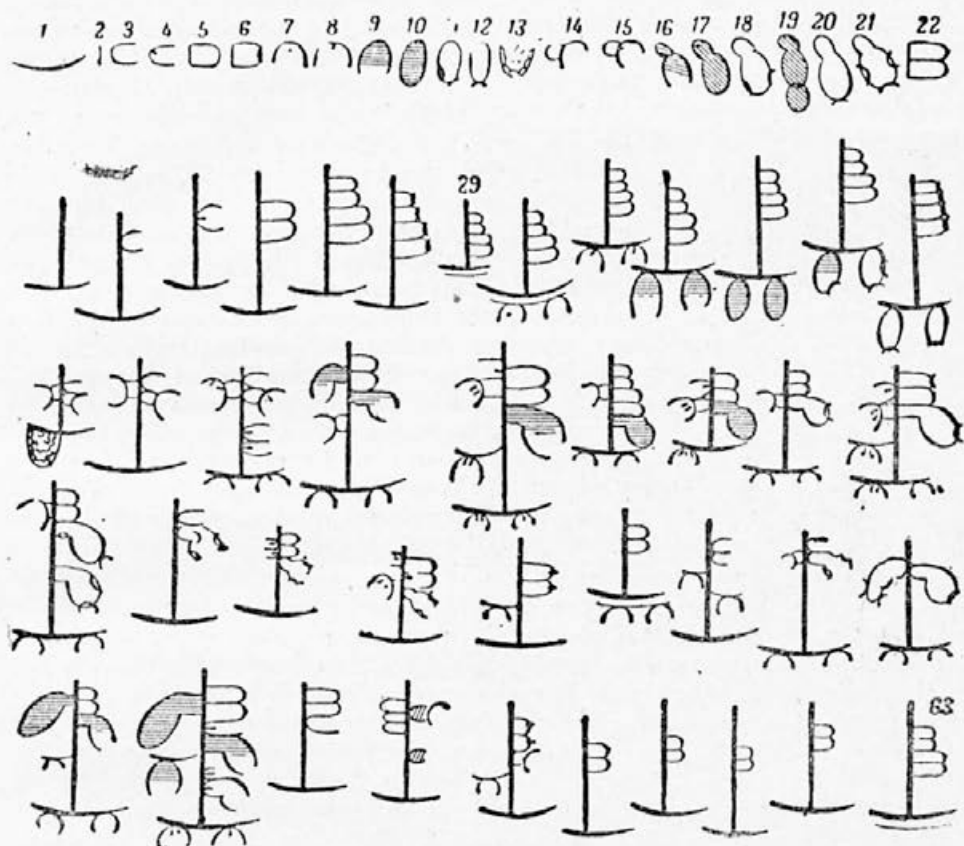 1 2 3 4 5 6 7 8 9 10 12 13 14 15 16 17 18 19 20 21 22
29
63